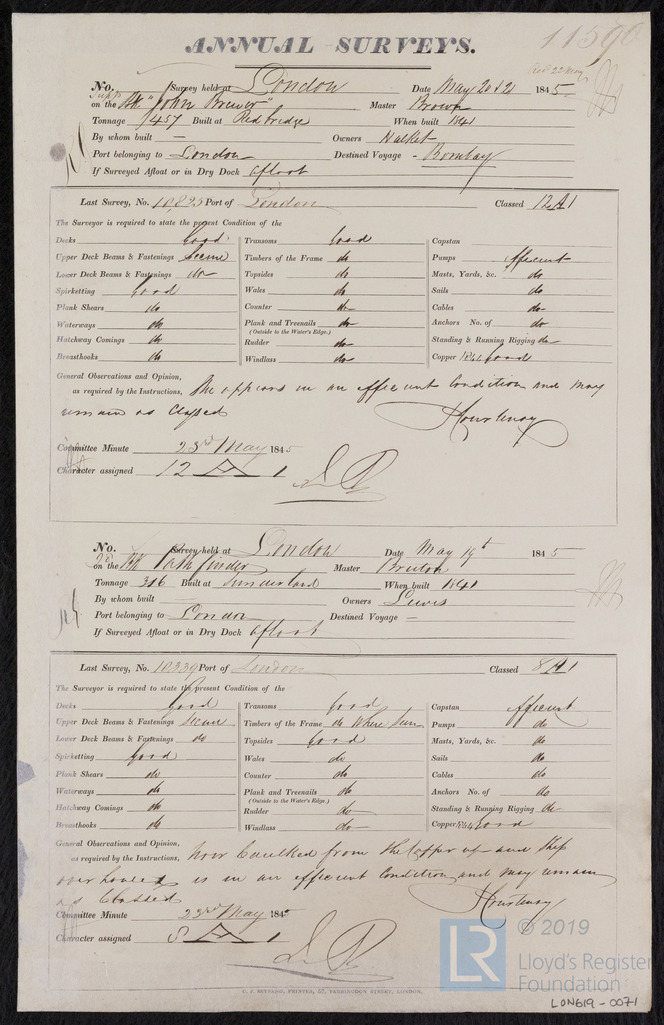 11590
ANNUAL SURVEYS.
No. Survey held at London Date May 20 & 21 1845
on the Bk "John Brewer" Master Brown
Tonnage 457 Built at Redbridge When built 1841
By whom built — Owners Walker
Port belonging to London Destined Voyage - Bombay
If Surveyed Afloat or in Dry Dock afloat
Last Survey, No. 10,823 Port of London Classed 12 A 1
The Surveyor is required to state the present Condition of the
Decks Good Transoms Good Capstan
Upper Deck Beams & Fastenings Secure Timbers of the Frame do Pumps efficient
Lower Deck Beams & Fastenings do Topsides do Masts, Yards, &c. do
Spirketting Good Wales do Sails do
Plank Shears do Counter do Cables do
Waterways do Plank and Treenails do Anchors No. of do
(Outside to the Water's Edge.)
Hatchway Comings do Rudder do Standing & Running Rigging do
Breasthooks do Windlass do Copper Good
General Observations and Opinion,
as required by the Instructions, She appears in an efficient Condition and may
remain as Classed
Courtenay
Committee Minute 23rd May 1845
Character assigned 12 A 1
No. Survey held at London Date May 19th 1845
on the Bk Pathfinder Master Bruton
Tonnage 316 Built at Sunderland When built 1841
By whom built Owners Lewis
Port belonging to London Destined Voyage —
If Surveyed Afloat or in Dry Dock afloat
Last Survey, No. 10339 Port of London Classed 8 A 1
The Surveyor is required to state the present Condition of the
Decks Good Transoms Good Capstan efficient
Upper Deck Beams & Fastenings Secure Timbers of the Frame do Where Seen Pumps do
Lower Deck Beams & Fastenings do Topsides Good Masts, Yards, &c. do
Spirketting Good Wales do Sails do
Plank Shears do Counter do Cables do
Waterways do Plank and Treenails do Anchors No. of do
(Outside to the Water's Edge.)
Hatchway Comings do Rudder do Standing & Running Rigging do
Breasthooks do Windlass do Copper Good
General Observations and Opinion,
as required by the Instructions, Now Caulked from the Copper up and Ship
overhauled is in an efficient Condition and may remain
as Classed
Courtenay
Committee Minute 23rd May 1845
Character assigned 8 A 1
C. F. SEYFANG, PRINTER, 57, FARRINGDON STREET, LONDON.
LR © 2019
Lloyd's Register
Foundation
LON619-0071